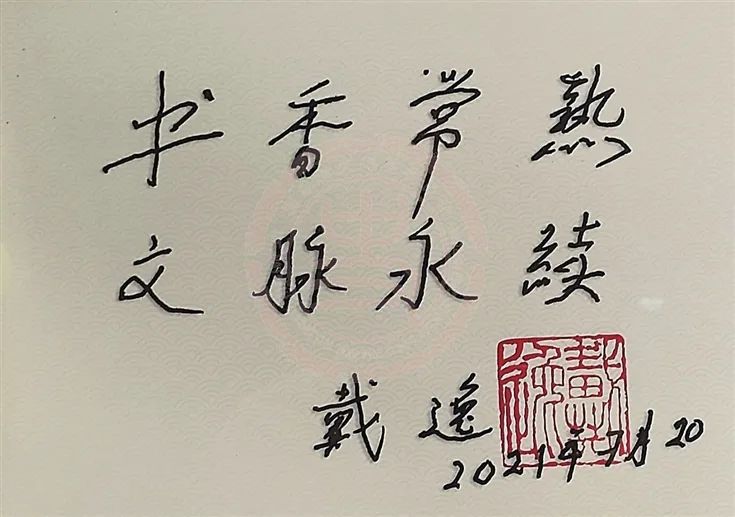 书香常热
文脉永续
戴逸
2021年7月20